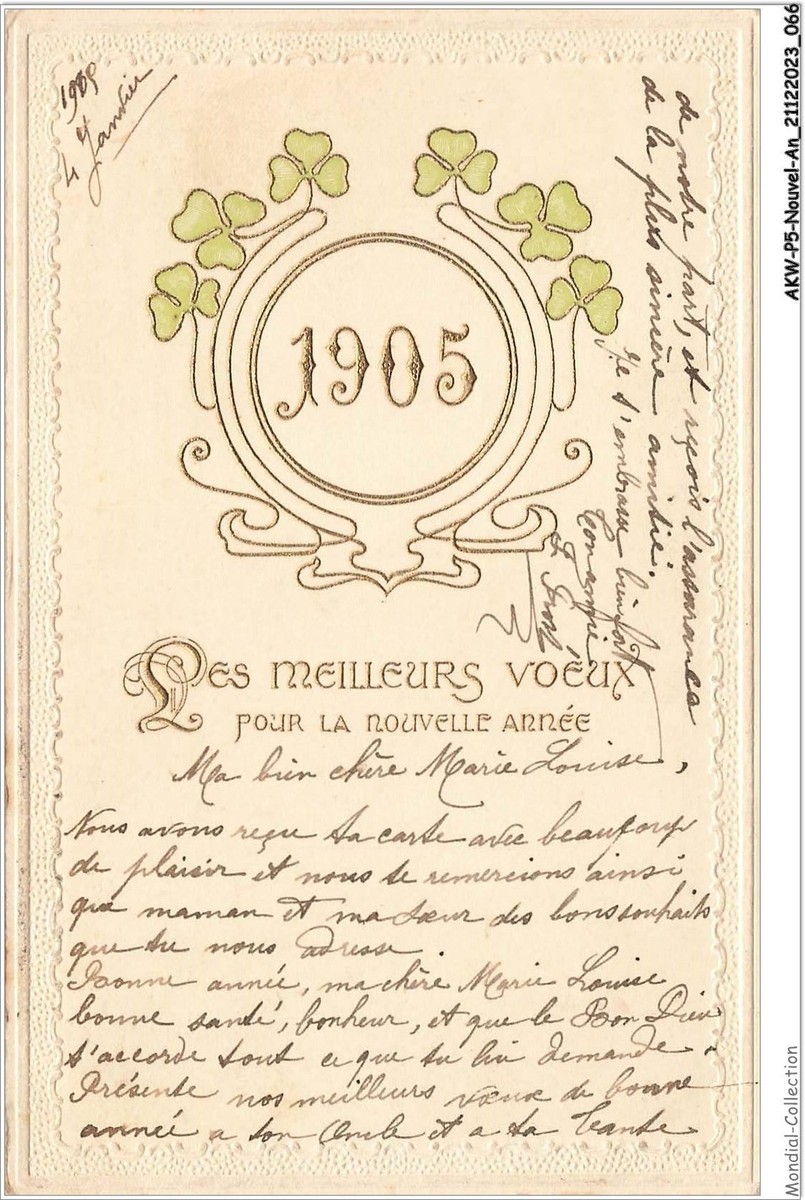 1905
4 Janvier
1905
Les meilleurs voeux
pour la nouvelle année
Ma bien chère Marie Louise,
Nous avons reçu ta carte avec beaucoup
de plaisir et nous te remercions ainsi
que maman et ma sœur des bons souhaits
que tu nous adresse.
Bonne année, ma chère Marie Louise
bonne santé, bonheur, et que le Bon Dieu
t'accorde tout ce que tu lui demande.
Présente nos meilleurs vœux de bonne
année a ton Oncle et a ta Tante
de notre part, et reçois l'assurance
de la plus sincère amitié.
Je t'embrasse bien fort
Ton amie
AKW-P5-Nouvel-An_21122023_066
Mondial-Collection